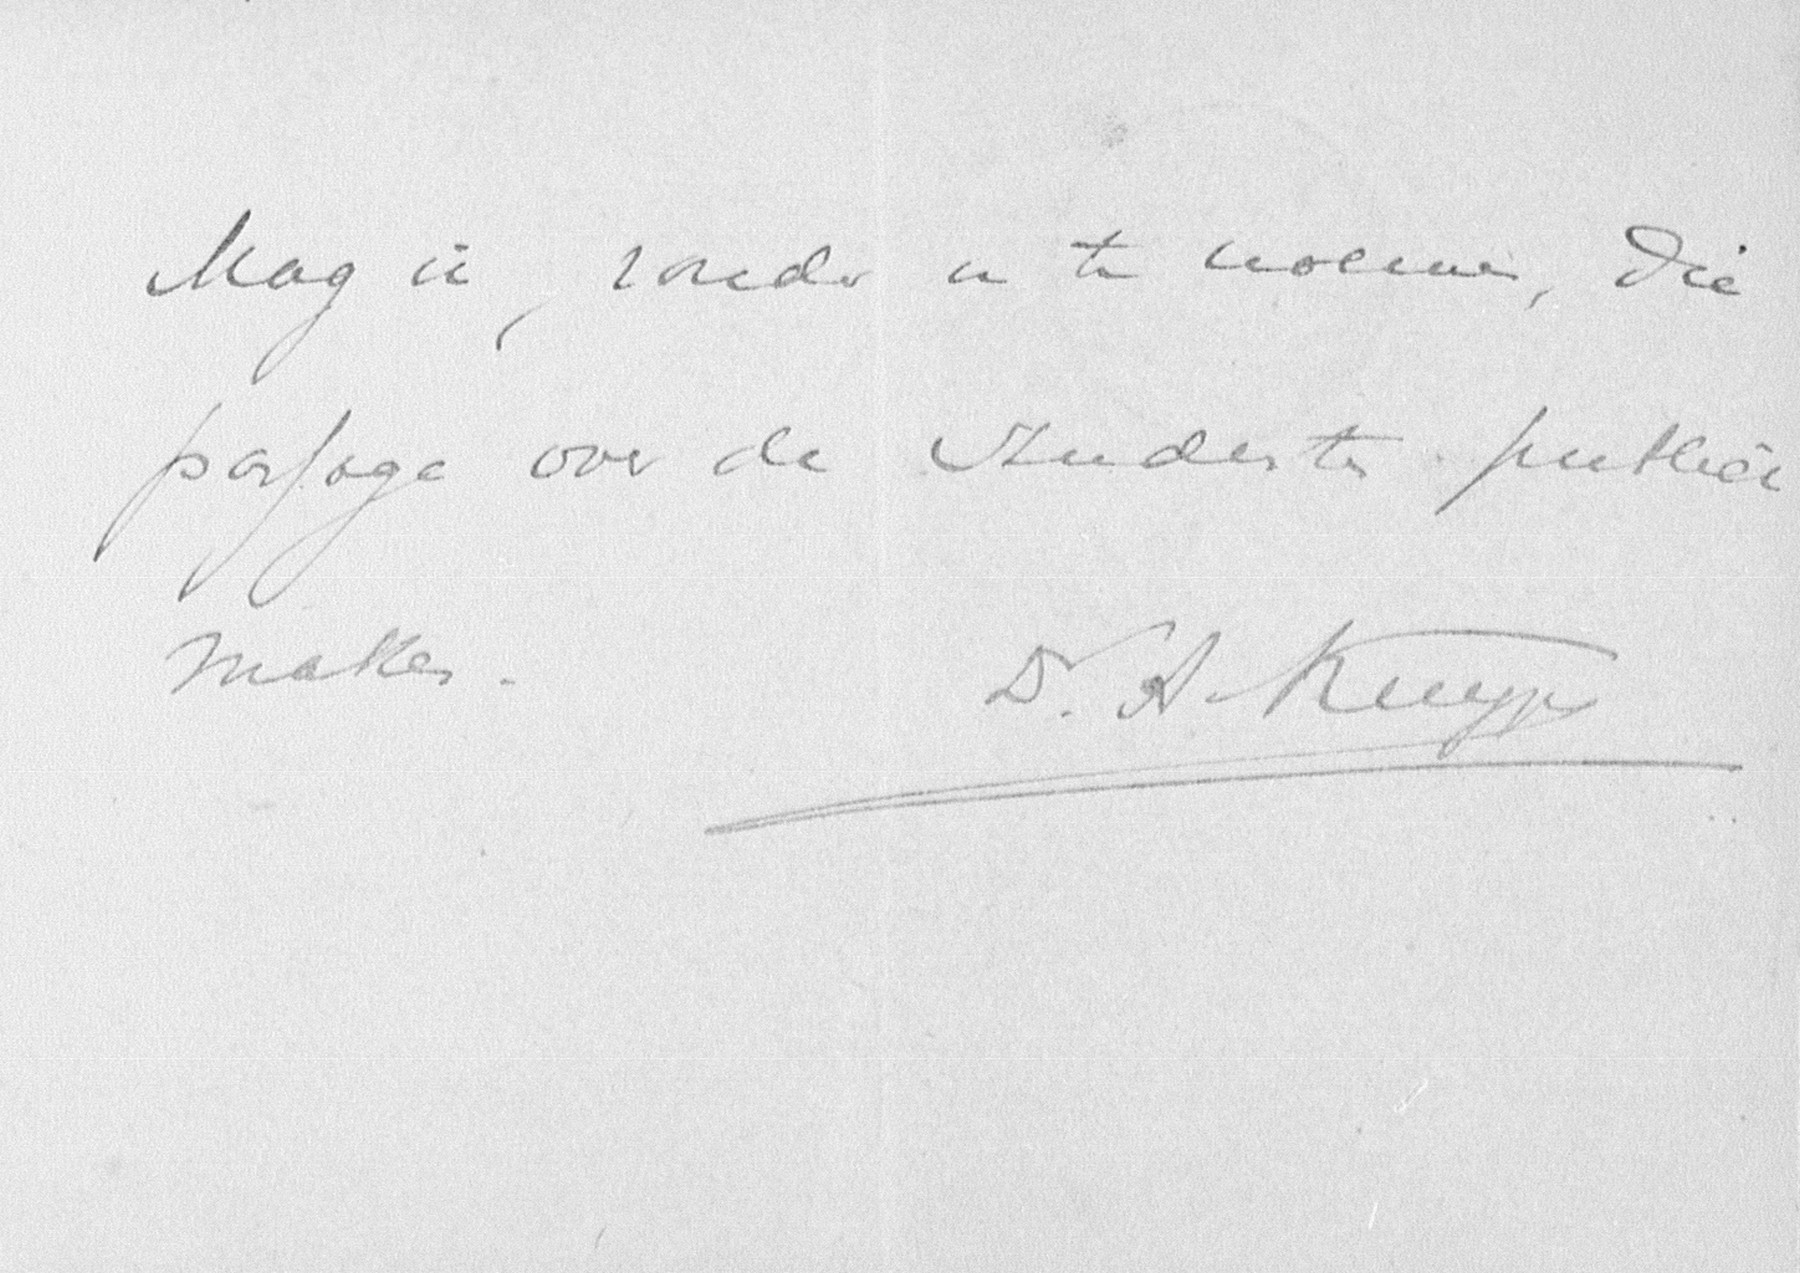 Mag ik, zonder u te noemen, die
passage over de Studenten publiek
maken.
Dr. A Kuyper